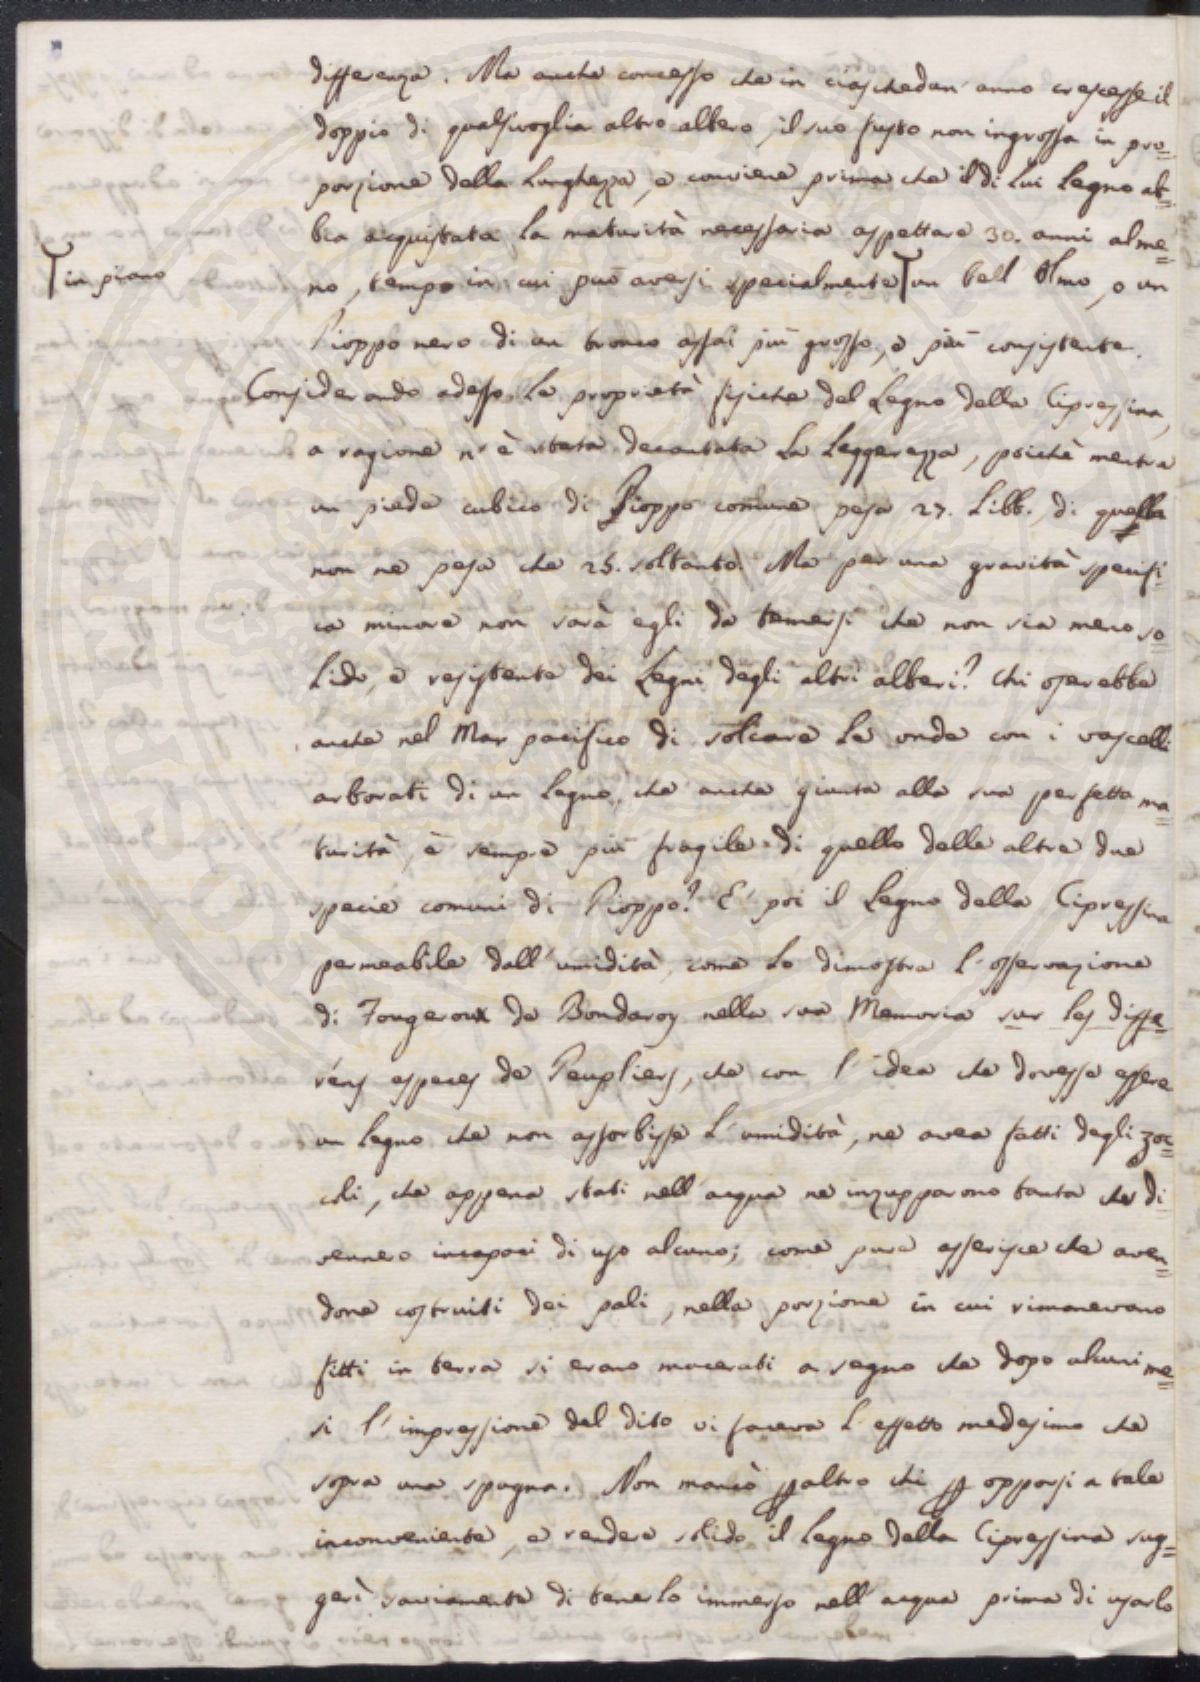 differenza. Ma anche concesso che in ciaschedun' anno crescesse il
doppio di qualsivoglia altro albero, il suo fusto non ingrossa in pro=
porzione della lunghezza, e conviene prima che il di lui Legno ab=
bia acquistata la maturità necessaria aspettare 30. anni alme=
in piano
no, tempo in cui può aversi specialmente un bell' Olmo, o un
Pioppo nero di un tronco assai più grosso, e più consistente.
Considerando adesso le proprietà fisiche del Legno della Cipressina,
a ragione n'è stata decantata la Leggerezza, poichè mentre
un piede cubico di Pioppo comune pesa 27. Libb. di quella
non ne pesa che 25. soltanto. Ma per una gravità specifi=
ca minore non sarà egli da temersi che non sia meno so=
lido, e resistente dei Legni degli altri alberi? Chi oserebbe
anche nel Mar pacifico di solcare le onde con i vascelli
arborati di un Legno, che anche giunto alla sua perfetta ma=
turità, è sempre più fragile di quello delle altre due
specie comuni di Pioppo? E' poi il Legno della Cipressina
permeabile dall' umidità, come lo dimostra l' osservazione
di Fougeroux de Bondaroy nella sua Memoria sur les diffe=
réns especes de Peupliers, che con l' idea che dovesse essere
un Legno che non assorbisse l' umidità, ne avea fatti degli zoc=
coli, che appena stati nell' acqua ne inzupparono tanta che di
vennero incapaci di uso alcuno; come pure asserisce che aven=
done costruiti dei pali, nella porzione in cui rimanevano
fitti in terra si erano macerati a segno che dopo alcuni me=
si l' impressione del dito vi faceva l' effetto medesimo che
sopra una spugna. Non mancò p altro chi p opporsi a tale
inconveniente, e rendere solido il Legno della Cipressina sug=
gerì saviamente di tenerlo immerso nell' acqua prima di usarlo